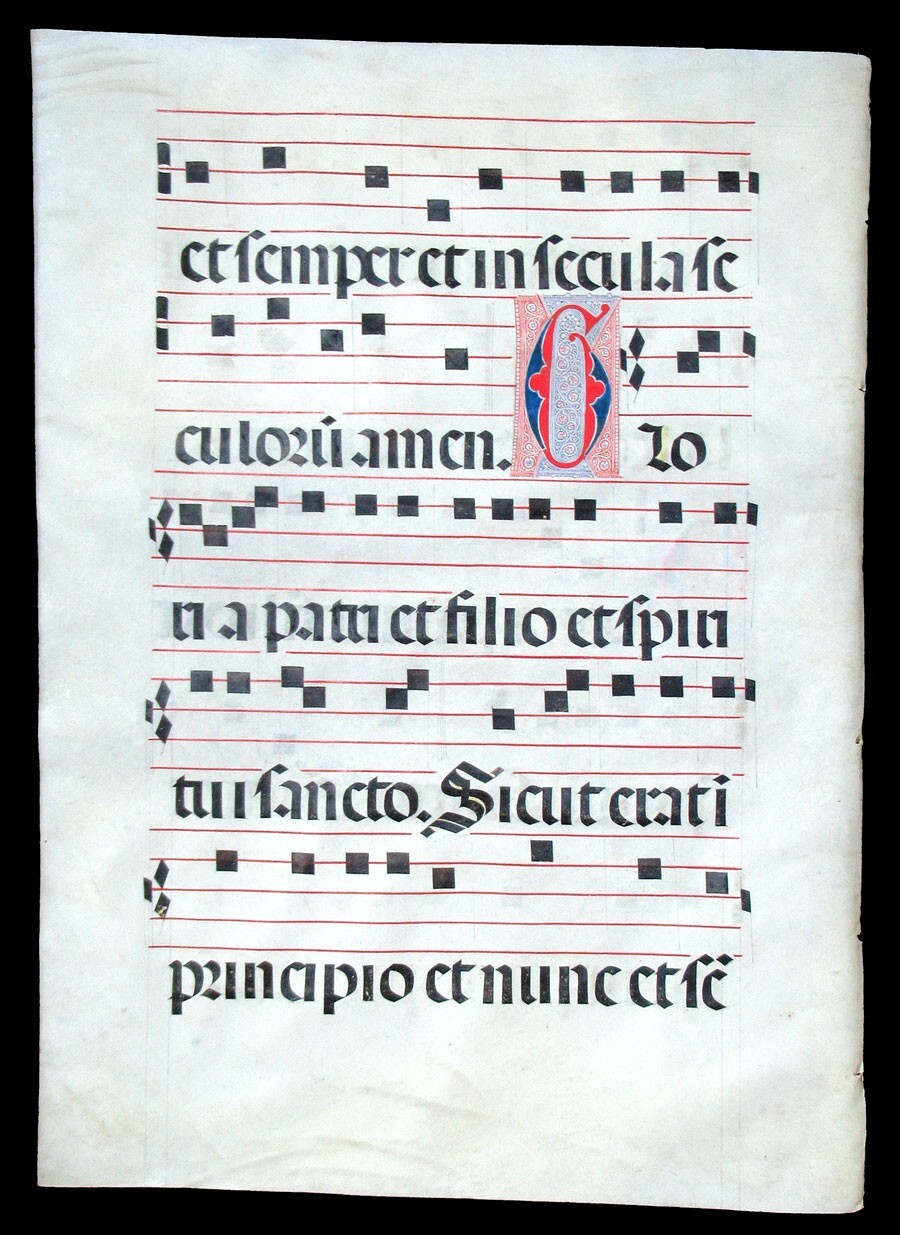 et semper et in secula se
culorū amen. Glo
ri a patri et filio et spiri
tui sancto. Sicut erat i
principio et nunc et sē